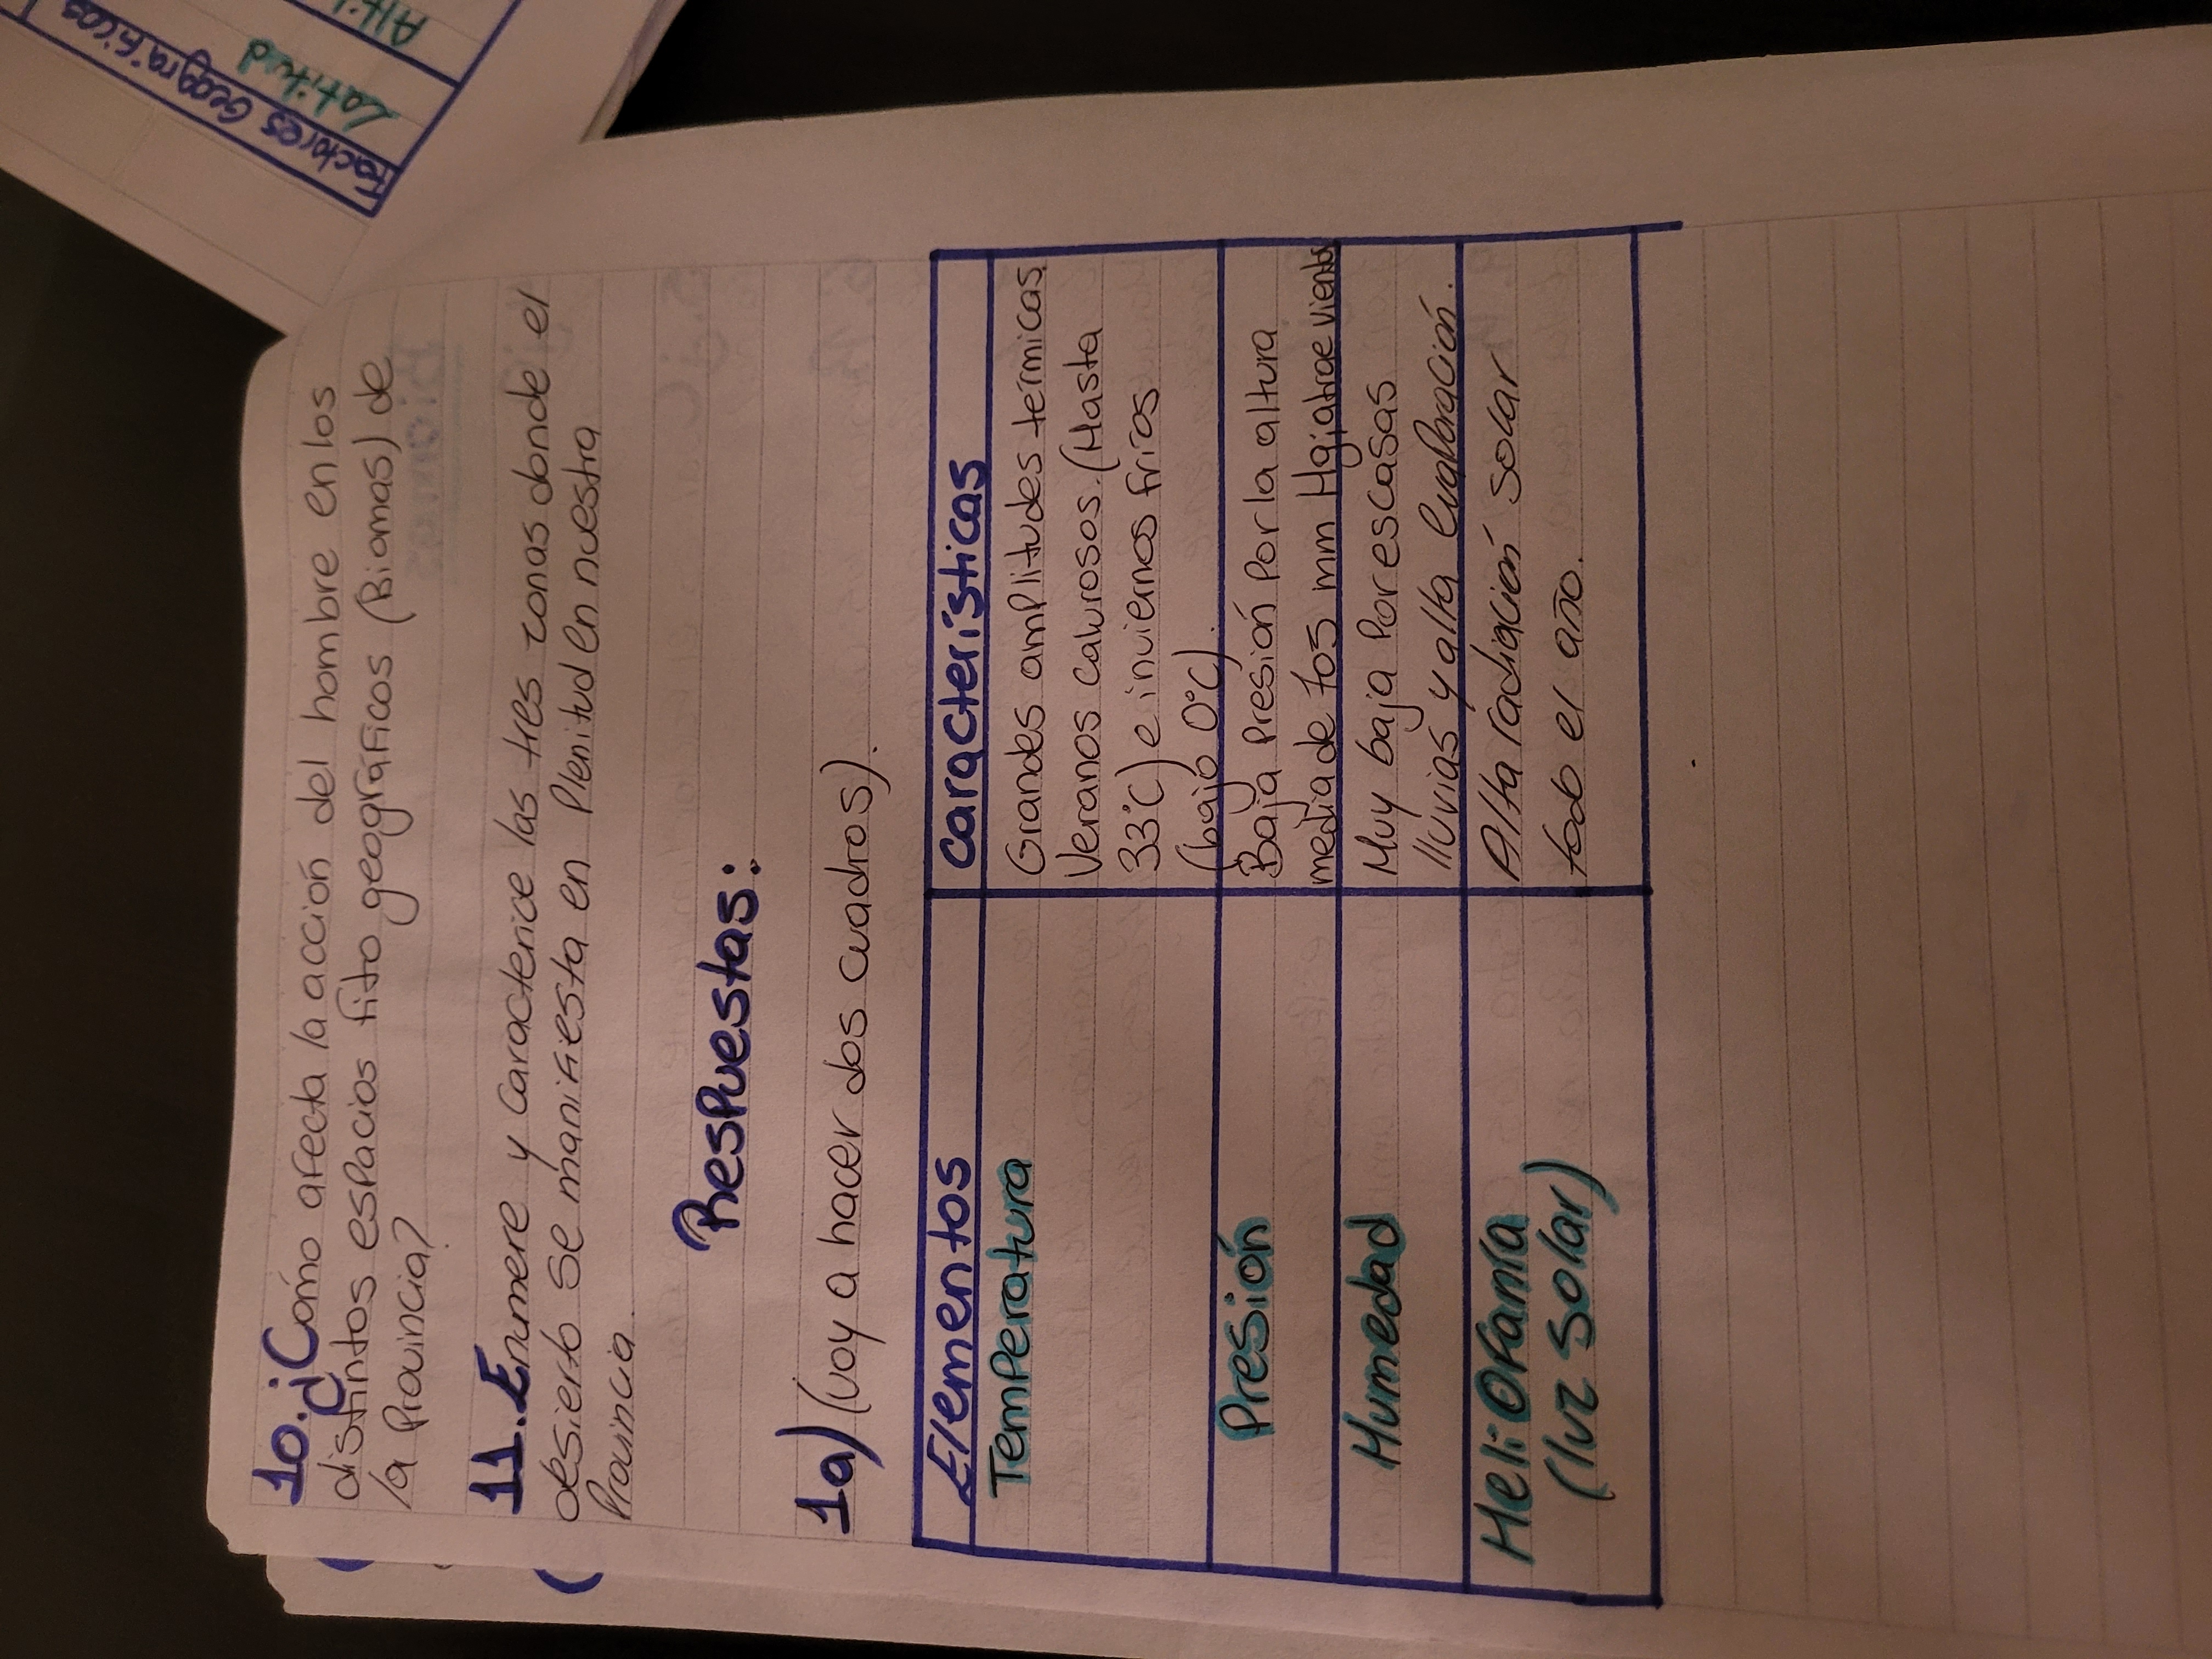 10. ¿Cómo afecta la acción del hombre en los
distintos espacios fito geográficos (Biomas) de
la Provincia?
11. Enumere y Caracterice las tres zonas donde el
desierto se manifiesta en Plenitud en nuestra
Provincia.
Respuestas:
1a) (voy a hacer dos cuadros).
Elementos
Características
Temperatura
Grandes amplitudes térmicas.
Veranos calurosos. (Hasta
33°C) e inviernos fríos
(bajo 0°C).
Presión
Baja Presión Por la altura
media de 705 mm Hg; atrae vientos
Humedad
Muy baja Por escasas
lluvias y alta evaporación.
Heliofanía
(luz solar)
Alta radiación solar
todo el año.
Factores Geográficos
Latitud